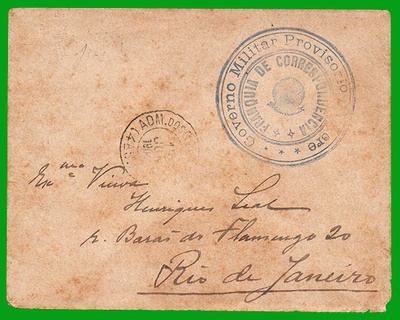 Governo Militar Provisorio
FRANQUIA DE CORRESPONDENCIA
ADM. DOS
Exma Viuva
Henriques Leal
r. Barão do Flamengo 20
Rio de Janeiro